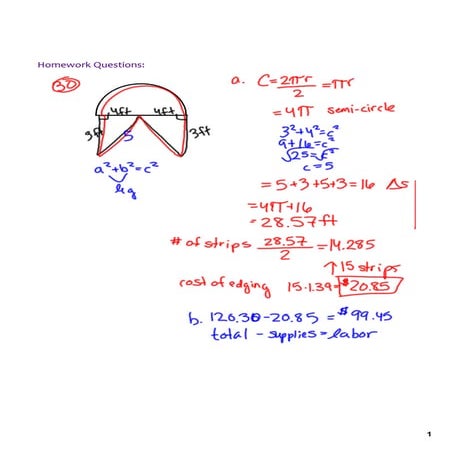 Homework Questions:
30
4ft 4ft
3ft 5 3ft
a²+b²=c²
leg
a. C=2πr/2=πr
=4π semi-circle
3²+4²=c²
9+16=c²
√25=√c²
c=5
=5+3+5+3=16 Δs
=4π+16
=28.57ft
# of strips 28.57/2=14.285
↑15 strips
cost of edging 15·1.39=$20.85
b. 120.30-20.85=$99.45
total - supplies=labor
1